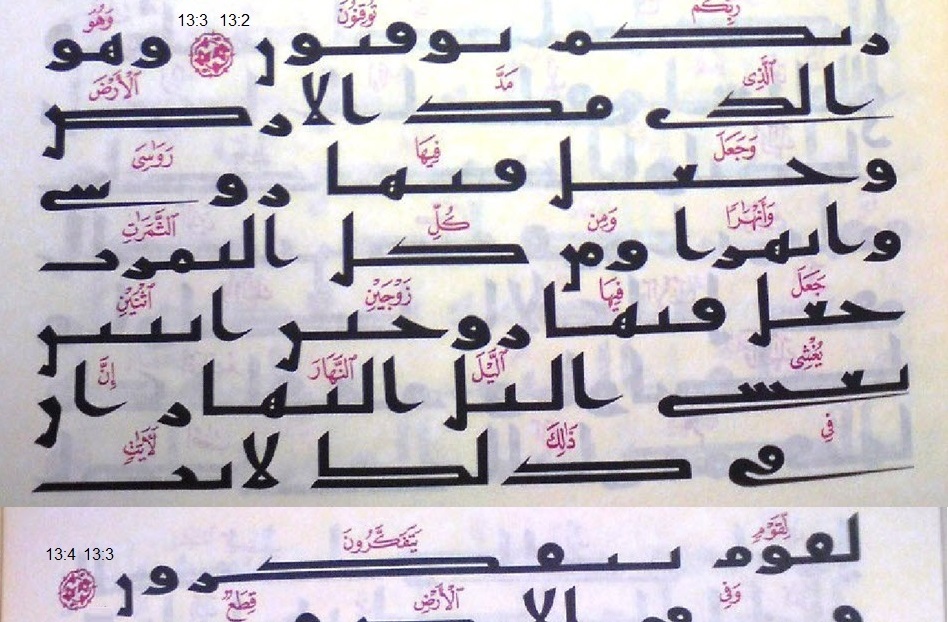 13:3 13:2
رَبِّكُمْ تُوقِنُونَ وَهُوَ
ربكم توقنون وهو
ٱلَّذِى مَدَّ ٱلْأَرْضَ
الذى مد الارض
وَجَعَلَ فِيهَا رَوَٰسِىَ
وجعل فيها روسى
وَأَنْهَٰرًا وَمِن كُلِّ ٱلثَّمَرَٰتِ
وانهرا ومن كل الثمرت
جَعَلَ فِيهَا زَوْجَيْنِ ٱثْنَيْنِ
جعل فيها زوجين اثنين
يُغْشِى ٱلَّيْلَ ٱلنَّهَارَ إِنَّ
يغشى اليل النهار ان
فِى ذَٰلِكَ لَءَايَٰتٍ
فى ذلك لايت
13:4 13:3
لِّقَوْمٍ يَتَفَكَّرُونَ
لقوم يتفكرون
وَفِى ٱلْأَرْضِ قِطَعٌ